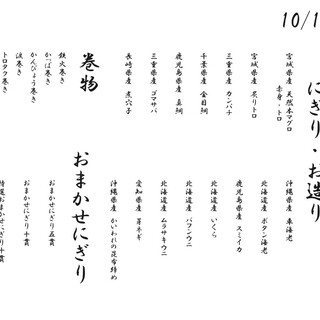 10/1
にぎり・お造り
宮城県産 天然本マグロ
赤身・トロ
宮城県産 炙りトロ
三重県産 カンパチ
千葉県産 金目鯛
鹿児島県産 真鯛
三重県産 ゴマサバ
長崎県産 煮穴子
沖縄県産 車海老
北海道産 ボタン海老
鹿児島県産 スミイカ
北海道産 いくら
北海道産 バフンウニ
北海道産 ムラサキウニ
愛知県産 芽ネギ
沖縄県産 かいわれの昆布締め
巻物
鉄火巻き
かっぱ巻き
かんぴょう巻き
トロタク巻き
おまかせにぎり
おまかせにぎり五貫
おまかせにぎり十貫
特選おまかせにぎり十貫